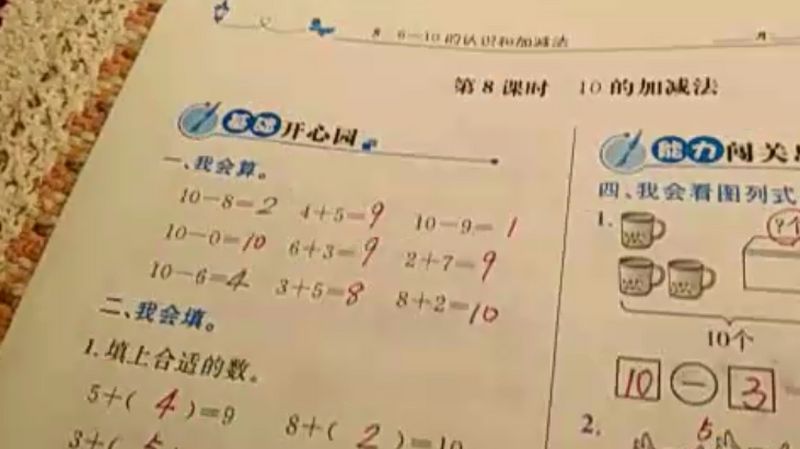 8 6-10的认识和加减法
第8课时 10的加减法
基础开心园
一、我会算。
10-8=2 4+5=9 10-9=1
10-0=10 6+3=9 2+7=9
10-6=4 3+5=8 8+2=10
二、我会填。
1.填上合适的数。
5+( 4 )=9 8+( 2 )=10
3+( 5
能力闯关
四、我会看图列式
1.
?个
10个
10 - 3
2.
5